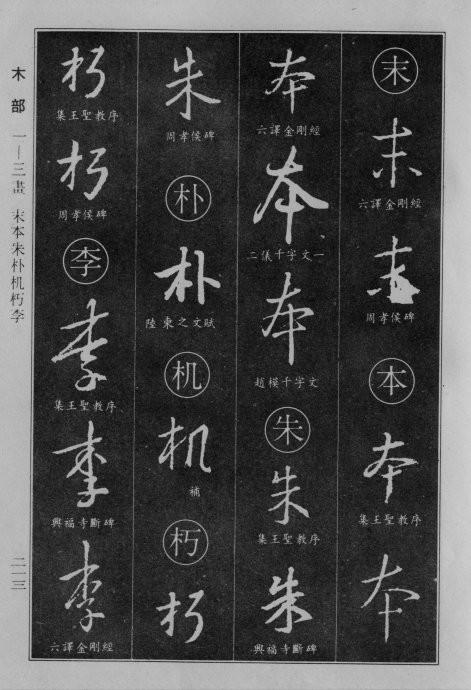 末
末
六譯金剛經
末
周孝侯碑
本
本
集王聖教序
本
本
六譯金剛經
本
二儀千字文一
本
趙模千字文
朱
朱
集王聖教序
朱
興福寺斷碑
朱
周孝侯碑
朴
朴
陸柬之文賦
机
机
補
朽
朽
朽
集王聖教序
朽
周孝侯碑
李
李
集王聖教序
李
興福寺斷碑
李
六譯金剛經
木部 一—三畫 末本朱朴机朽李
二一三